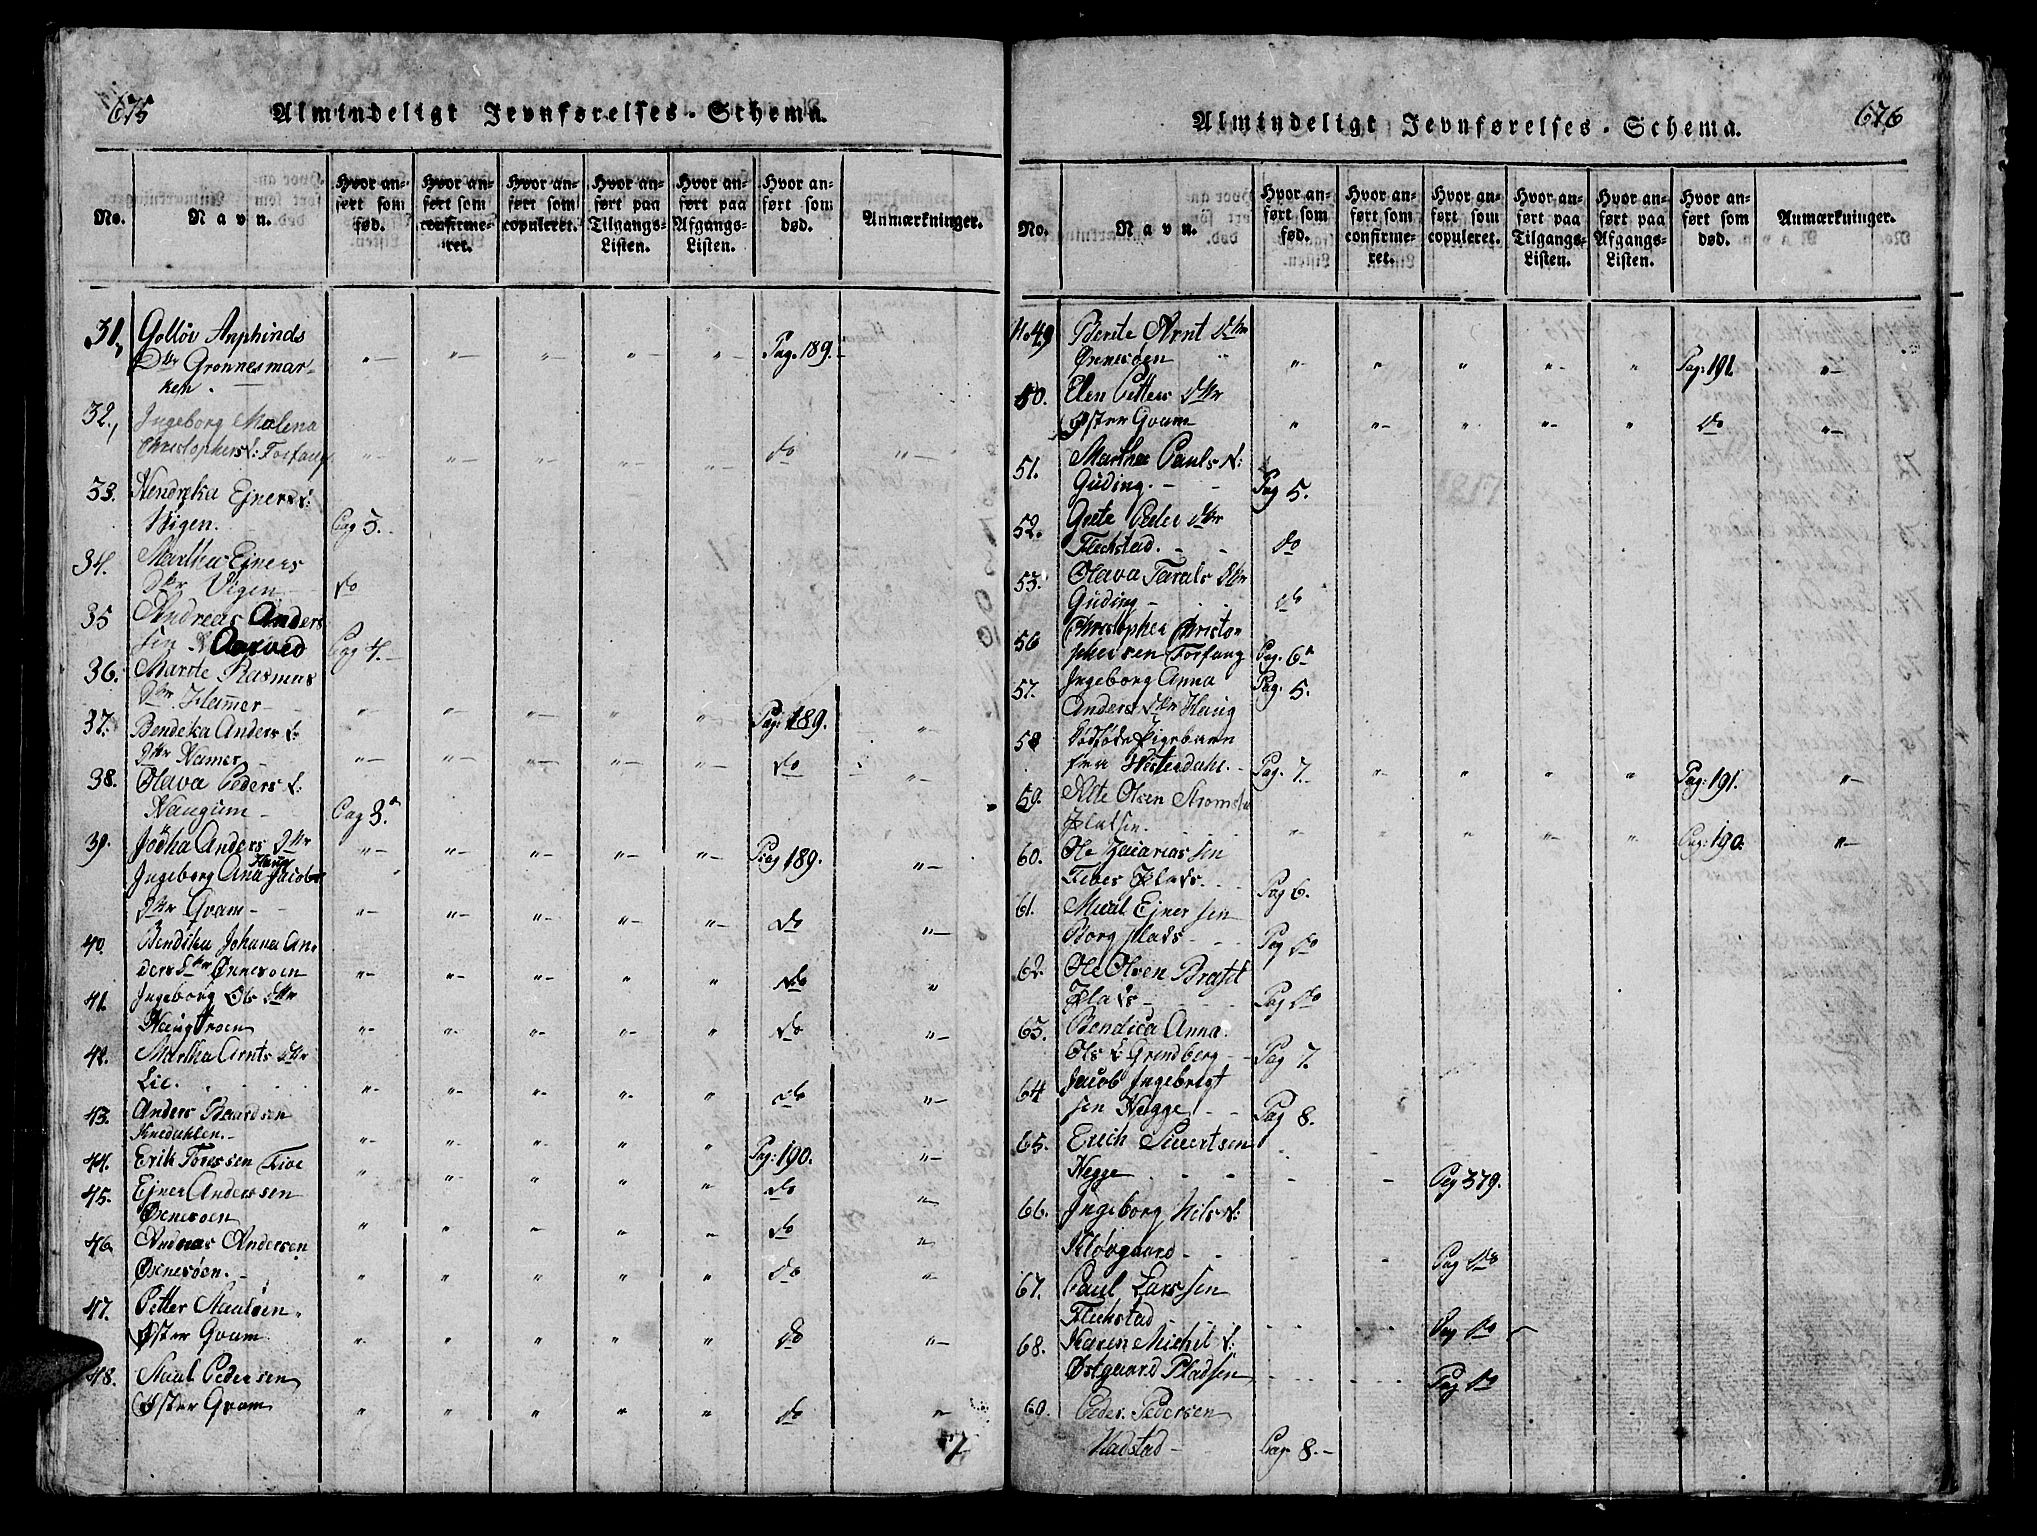 675
Almindeligt Jevnførelses-Schema.
No.
Navn.
Hvor anført som fød.
Hvor anført som confirmeret.
Hvor anført som copuleret.
Hvor anført paa Tilgangs-Listen.
Hvor anført paa Afgangs-Listen.
Hvor anført som død.
Anmærkninger.
31, Golløv Anphinds
Dtr Grønnesmar-
ken. Pag. 189.
32., Ingeborg Malena
Christophers d: Forfang do
33. Hendreka Ejners d:
Vigen. Pag 3.
34. Martha Ejners
Dtr Vigen do
35 Andreas Anders
sen Aarved Pag 4.
36. Marite Rasmus
Dtr Hamer Pag: 189.
37. Bendeka Anders d:
Dtr Hamer do
38. Olava Peders d:
Haugum Pag 3.
39. Jødha Anders Dtr
Haug Pag 189.
Ingeborg Ana Jacobs
Dtr Qvam do
40. Bendika Johana An-
ders Dtr Ørnesøen do
41. Ingeborg Ols Dtr
Haugtrøen do
42. Martha Arnts Dtr
Lie. do
43. Anders Baardsen
Knedahlen. Pag: 190.
44. Erik Toressen Five do
45. Ejner Anderssen
Ørnesøen do
46. Andreas Andersen
Ørnesøen. do
47. Petter Paulsen
Øster Qvam do
48. Paul Pedersen
Øster Qvam do
676
Almindeligt Jevnførelses-Schema.
No.
Navn.
Hvor anført som fød.
Hvor anført som confirmeret.
Hvor anført som copuleret.
Hvor anført paa Tilgangs-Listen.
Hvor anført paa Afgangs-Listen.
Hvor anført som død.
Anmærkninger.
No. 49 Berite Arnt Dtr
Ørnesøen Pag: 191.
50. Elen Petters Dtr
Øster Qvam do
51. Martha Pauls d:
Guding. Pag 5.
52. Grete Peder Dtr
Flekstad. do
53. Olava Tarals Dtr
Guding do
56 Christopher Christo-
phersen Forfang Pag. 6
57. Ingeborg Anna
Anders Dtr Haug Pag. 5.
58 Dødføde Pigebarn
fra Westerdahl. Pag. 7. Pag: 191.
59. Atte Olsen Strøms
Pladsen. Pag: 190.
60. Ole Zacariassen
Fives Plads. Pag 6.
61. Paul Ejnersen
Borg plads Pag do
62. Ole Olsen Bragst
Plads Pag do
63. Bendica Anna
Ols d: Grindberg Pag 7.
64 Jacob Ingebrigt
sen Hegge Pag 8.
65. Erich Siuertsen
Hegge Pag 379.
66. Ingeborg Nils d:
Kløvgaard Pag do
67. Paul Larssen
Flekstad Pag do
68. Karen Michel d:
Østgaard Pladsen Pag do
69. Peder Pedersen
Hadstad Pag 8.